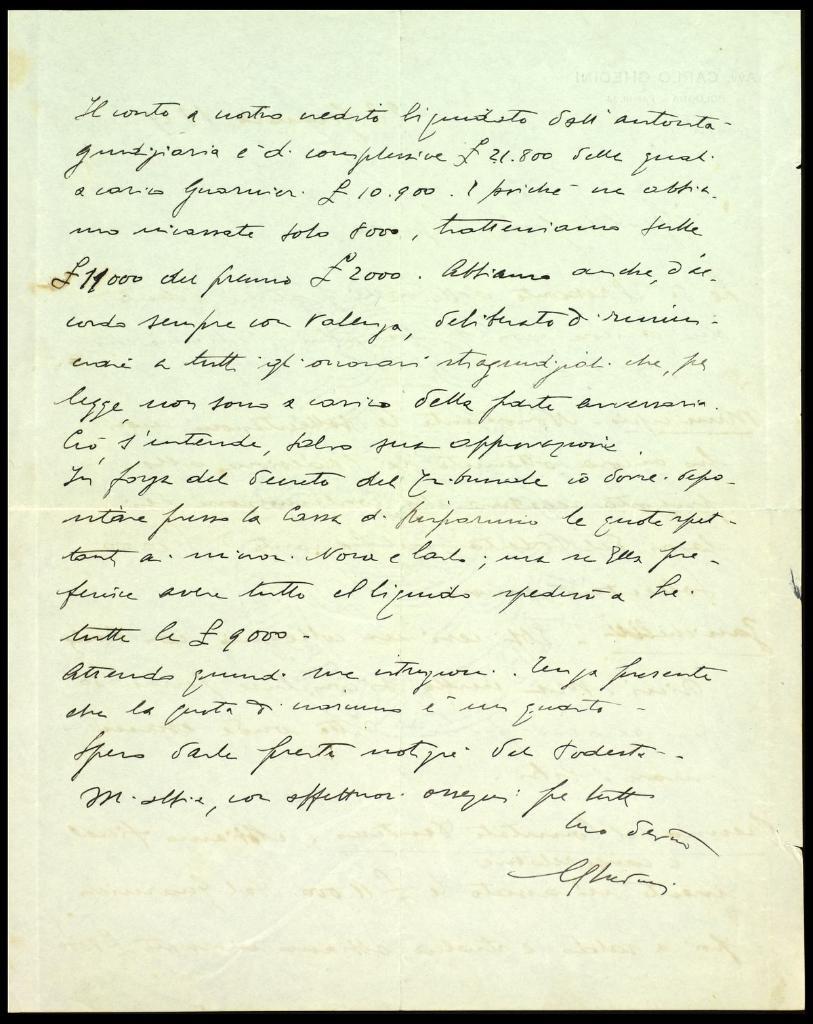 Il conto a nostro credito liquidato dall'autorità
giudiziaria è di complessive £ 21.800 delle quali
a carico Guarnieri £ 10.900. E poiché ne abbia-
mo incassate solo 8000, tratteniamo sulle
£ 11000 del premio £ 2000. Abbiamo anche, d'ac-
cordo sempre con Valenza, deliberato di rinun-
ciare a tutti gli onorari stragiudiziali che, per
legge, non sono a carico della parte avversaria.
Ciò, s'intende, salvo sua approvazione.
In forza del decreto del Tribunale io dovrei depo-
sitare presso la Cassa di Risparmio le quote spet-
tanti ai minori Nora e Carlo; ma se Ella pre-
ferisce avere tutto il liquido spedirò a Lei
tutte le £ 9000.
Attendo quindi sue istruzioni. Tenga presente
che la quota di ciascuno è un quarto.
Spero darle presto notizie del Podestà.
Mi abbia, con affettuosi ossequi per tutti
suo devmo
Ghedini
AVV. CARLO GHEDINI